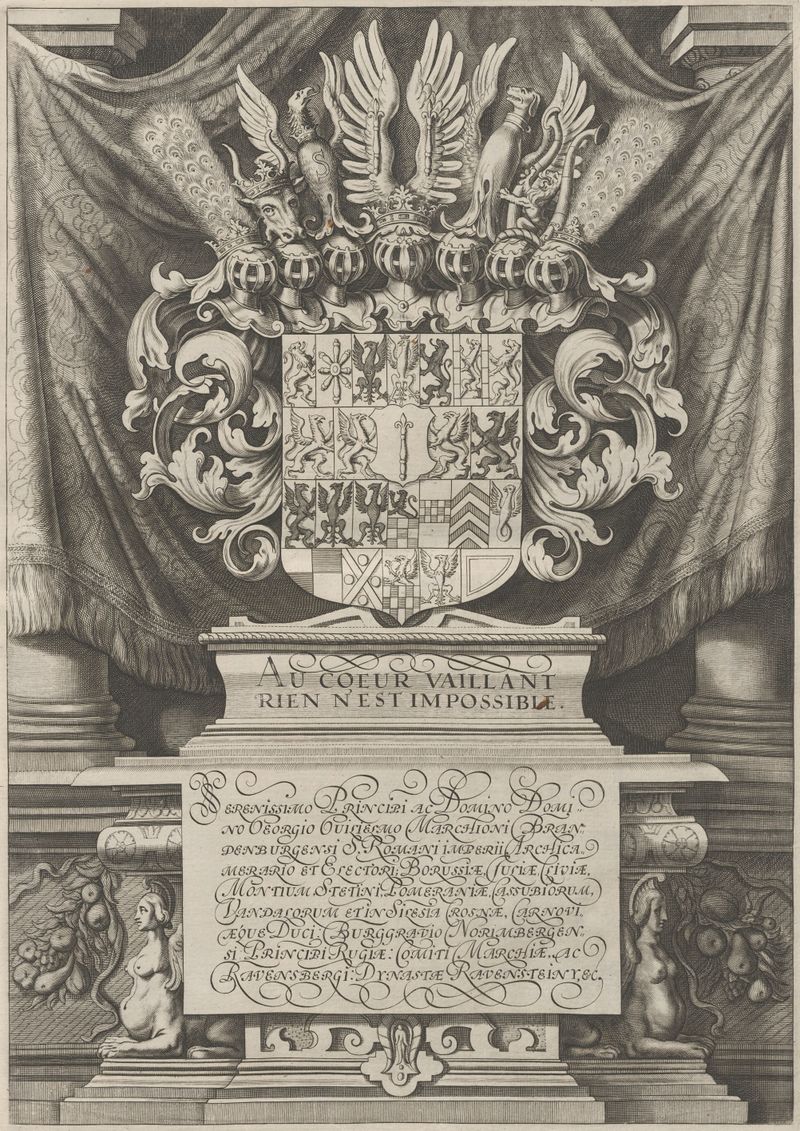 S
AU COEUR VAILLANT
RIEN N'EST IMPOSSIBLE.
SERENISSIMO PRINCIPI AC DOMINO DOMI-
NO GEORGIO GUILIELMO MARCHIONI BRAN-
DENBURGENSI S. ROMANI IMPERII ARCHICA-
MERARIO ET ELECTORI: BORUSSIÆ, IULIÆ, CLIVIÆ,
MONTIUM, STETINI, POMERANIÆ, CASSUBIORUM,
VANDALORUM ET IN SILESIA CROSNÆ, CARNOVI-
ÆQUE DUCI: BURGGRAVIO NORIMBERGEN-
SI PRINCIPI RUGIÆ: COMITI MARCHIÆ, AC
RAVENSBERGI: DYNASTÆ RAVENSTEINY, &C.